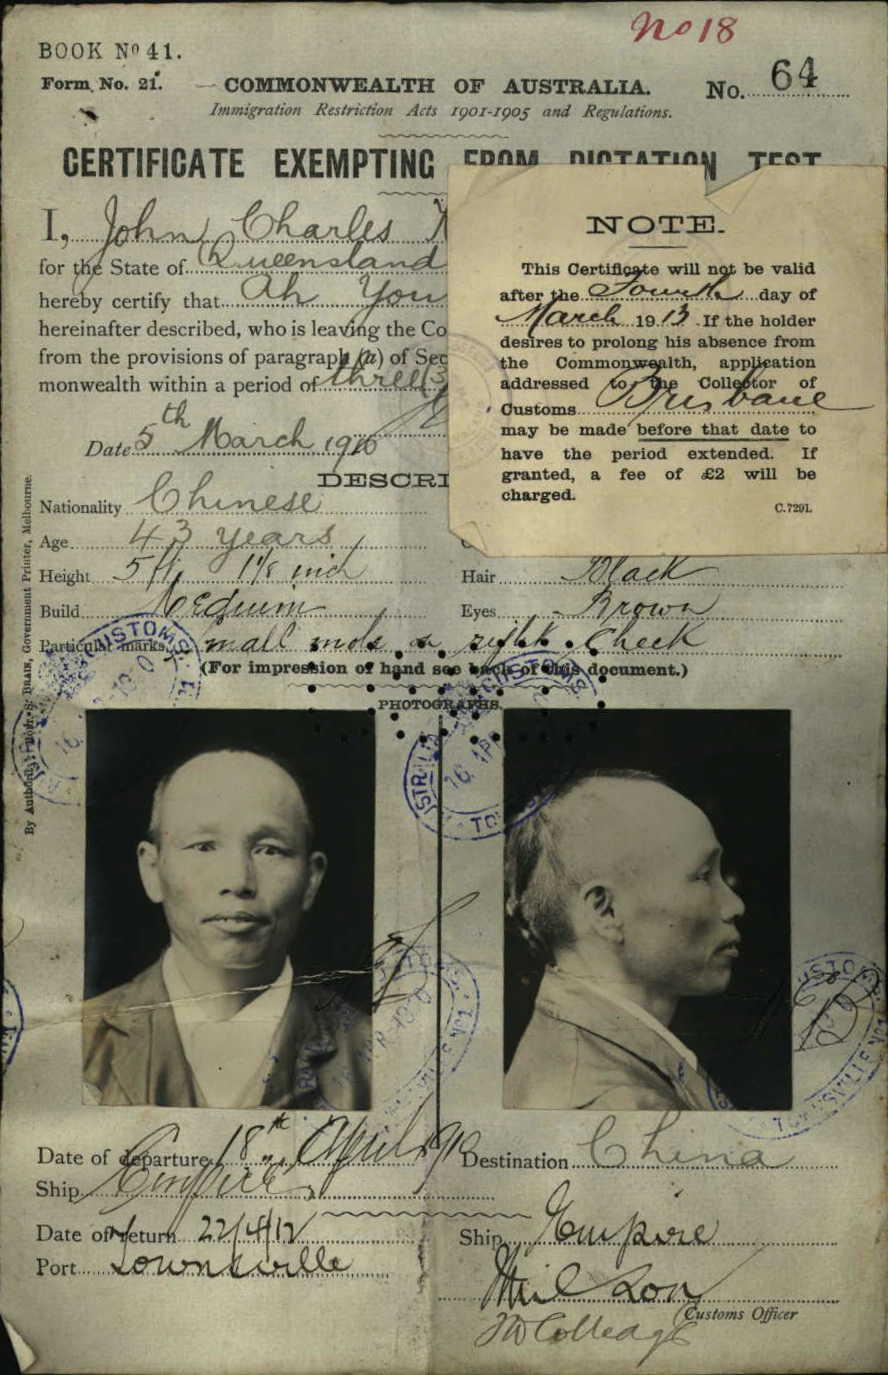 No 18
BOOK No 41.
Form No. 21.
COMMONWEALTH OF AUSTRALIA.
No. 64
Immigration Restriction Acts 1901-1905 and Regulations.
CERTIFICATE EXEMPTING FROM DICTATION TEST
I, John Charles
for the State of Queensland
hereby certify that Ah You
hereinafter described, who is leaving the Co
from the provisions of paragraph (a) of Sec
monwealth within a period of three (3
Date 5th March 1910
NOTE.
This Certificate will not be valid
after the Fourth day of
March 1913. If the holder
desires to prolong his absence from
the Commonwealth, application
addressed to the Collector of
Customs Brisbane
may be made before that date to
have the period extended. If
granted, a fee of £2 will be
charged.
C.7291.
DESCRI
Nationality Chinese
Age 43 years
Height 5 ft 1⅛ inch
Hair Black
Build Medium
Eyes Brown
Particular marks Small mole on right Cheek
(For impression of hand see back of this document.)
PHOTOGRAPHS.
By Authority: Government Printer, Melbourne.
Date of departure 18th April 1910
Destination China
Ship Empire
Date of return 22/4/12
Ship Empire
Port Townsville
Customs Officer